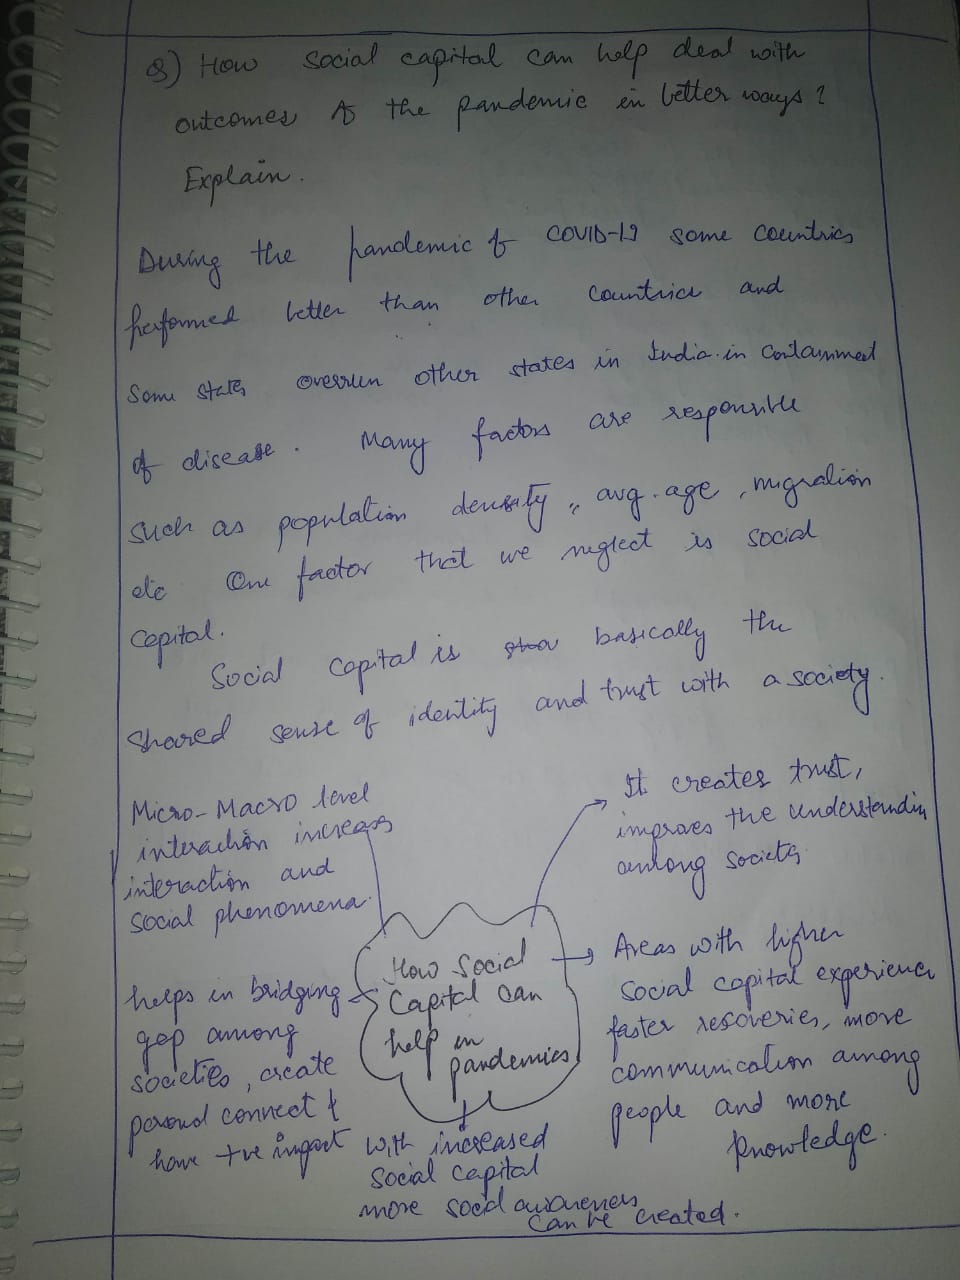 Q) How social capital can help deal with
outcomes of the pandemic in better ways?
Explain.
During the pandemic of COVID-19 some countries
performed better than other countries and
some states overrun other states in India in containment
of disease. Many factors are responsible
such as population density, avg. age, migration
etc One factor that we neglect is social
capital.
Social capital is basically the
shared sense of identity and trust with a society.
Micro-Macro level
interaction increases
interaction and
social phenomena.
It creates trust,
improves the understandin
among society
How Social
Capital can
help in
pandemics
Areas with higher
social capital experience
faster recoveries, more
communication among
people and more
knowledge.
helps in bridging
gap among
societies, create
personal connect &
have +ve impact
With increased
social capital
more social awareness
can be created.